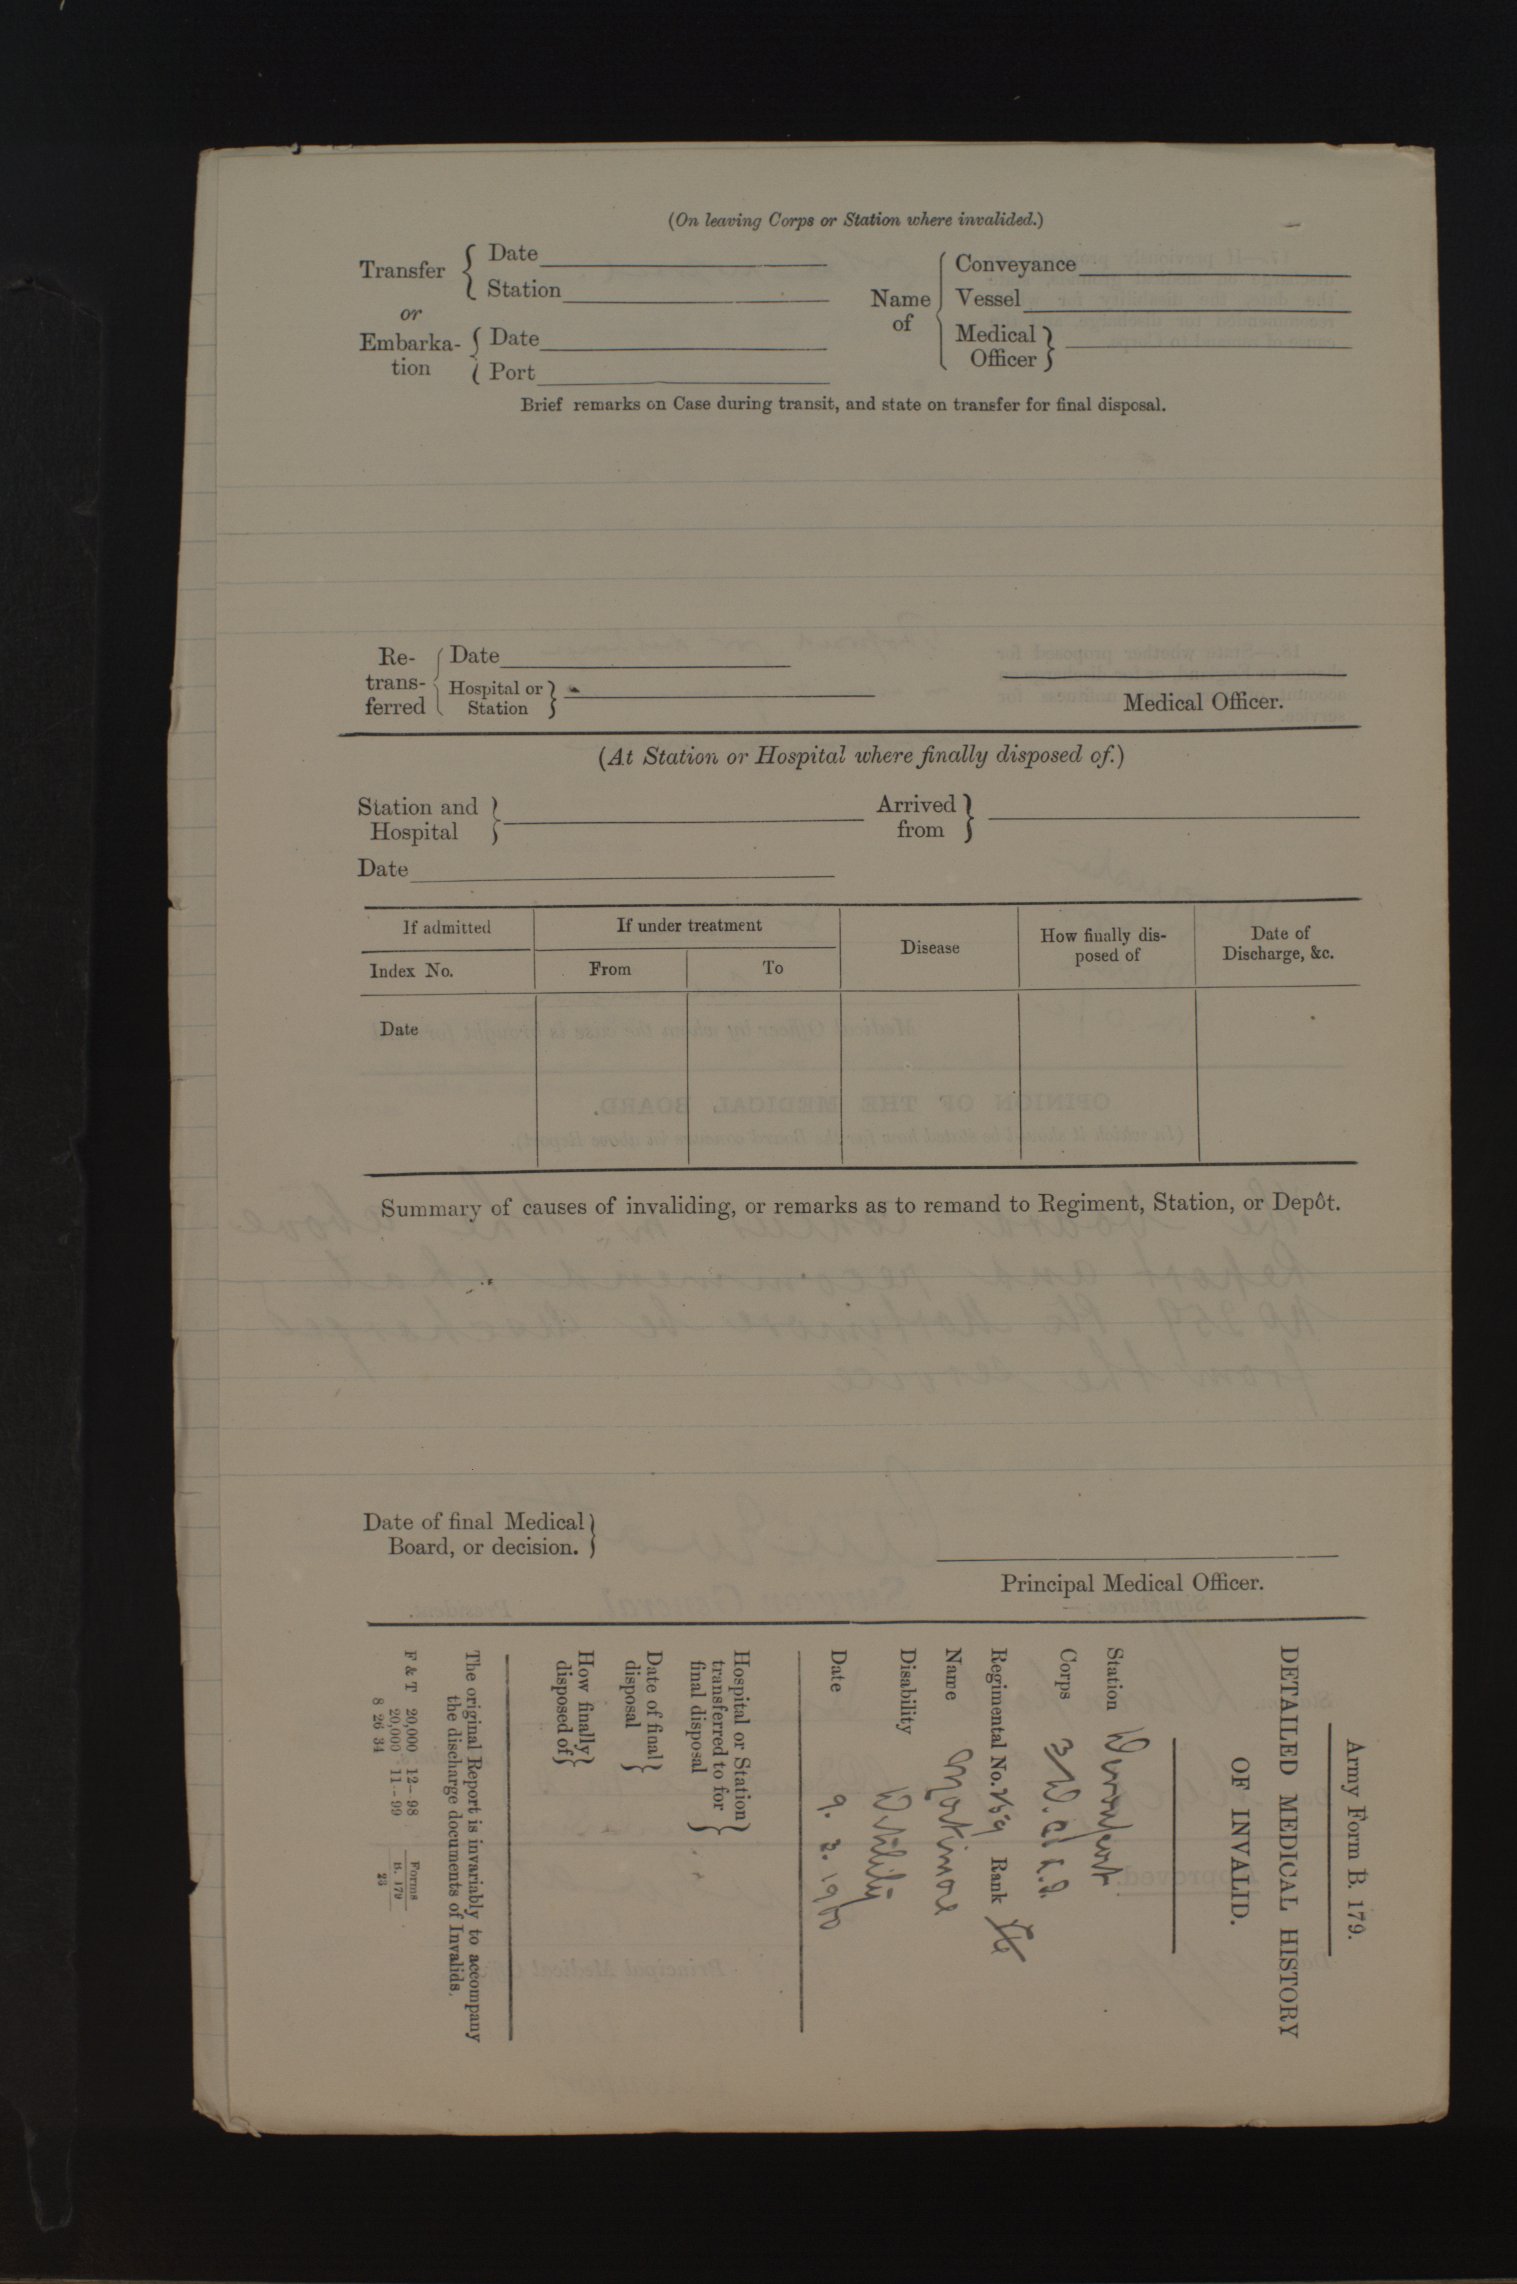 (On leaving Corps or Station where invalided.)
Transfer
Date
Station
or
Embarka-
tion
Date
Port
Name
of
Conveyance
Vessel
Medical
Officer
Brief remarks on Case during transit, and state on transfer for final disposal.
Re-
trans-
ferred
Date
Hospital or
Station
Medical Officer.
(At Station or Hospital where finally disposed of.)
Station and
Hospital
Arrived
from
Date
If admitted
If under treatment
Disease
How finally dis-
posed of
Date of
Discharge, &c.
Index No.
From
To
Date
Summary of causes of invaliding, or remarks as to remand to Regiment, Station, or Depôt.
Date of final Medical
Board, or decision.
Principal Medical Officer.
Army Form B. 179.
DETAILED MEDICAL HISTORY
OF INVALID.
Station Devonport
Corps
Regimental No. 259 Rank Pte
Name Mortimore
Disability Debility
Date 9. 3. 1900
Hospital or Station
transferred to for
final disposal
Date of final
disposal
How finally
disposed of
The original Report is invariably to accompany
the discharge documents of Invalids.
F & T 20,000 12—98
20,000 11—99
8 26 34
Forms
B. 179